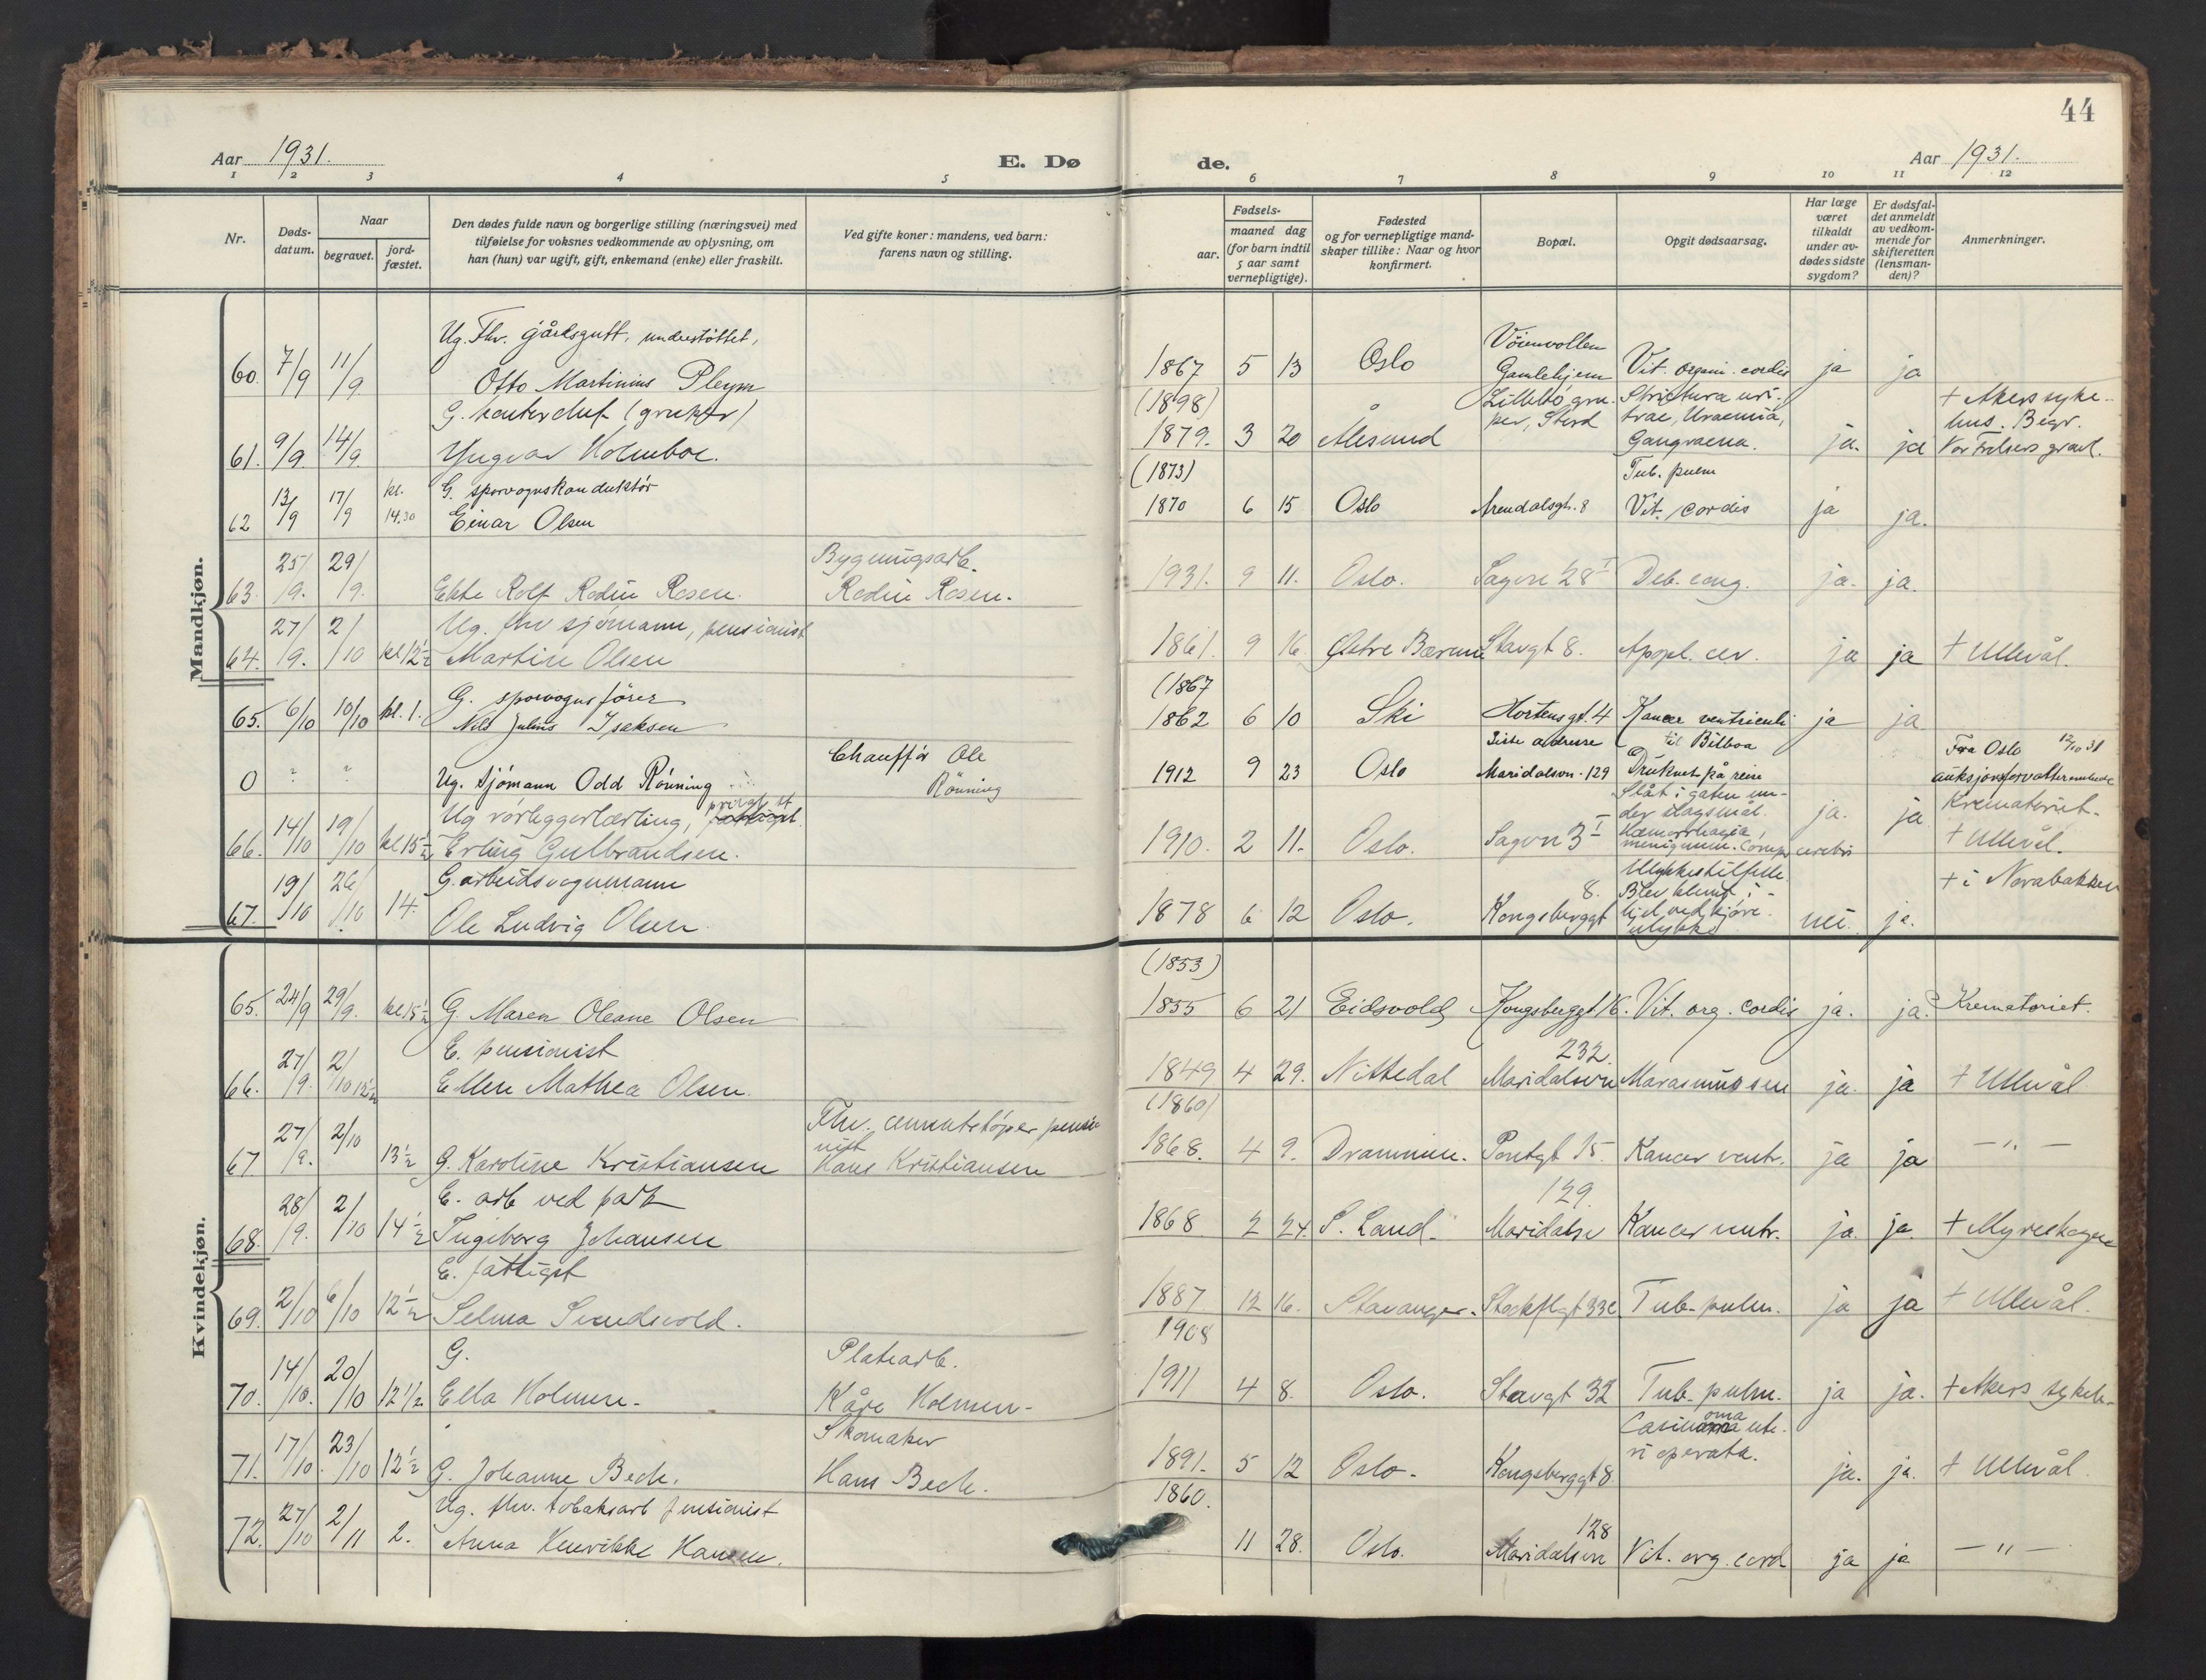 44
Aar 1931.
E. Dø
de.
Aar 1931.
1 2 3 4 5 6 7 8 9 10 11 12
Nr.
Døds-
datum.
Naar
begravet.
jord-
fæstet.
Den dødes fulde navn og borgerlige stilling (næringsvei) med
tilføielse for voksnes vedkommende av oplysning, om
han (hun) var ugift, gift, enkemand (enke) eller fraskilt.
Ved gifte koner: mandens, ved barn:
farens navn og stilling.
Fødsels-
aar.
maaned dag
(for barn indtil
5 aar samt
vernepligtige).
Fødested
og for vernepligtige mand-
skaper tillike: Naar og hvor
konfirmert.
Bopæl.
Opgit dødsaarsag.
Har læge
været
tilkaldt
under av-
dødes sidste
sygdom?
Er dødsfal-
det anmeldt
av vedkom-
mende for
skifteretten
(lensman-
den)?
Anmerkninger.
Mandkjøn.
Ug. Fhv. gårdsgutt, understöttet,
60. 7/9 11/9 Otto Martinius Pleym 1867 5 13 Oslo Vöienvollen Gamlehjem Vit. organi. cordis ja ja
G. kontorchef (gruber)
61. 9/9 14/9 Yngvar Holmboe. (1898) 1879. 3 20 Ålesund Lillebö gru-
ber, Stord Strictura uri-
trae, Uraemia,
Gangraena. ja. ja + Akers syke-
hus. Begr.
Vor Frelsers gravl.
G. sporvognskonduktör
62 13/9 17/9 kl. 14.30 Einar Olsen (1873) 1870 6 15 Oslo Arendalsgt. 8 Tub. pulm
Vit. cordis ja ja.
63. 25/9. 29/9. Ekte Rolf Rodin Rosen. Bygningsarb.
Rodin Rosen. 1931. 9 11. Oslo. Sagvn 28 I Deb. cong. ja. ja.
Ug. fhv sjömann, pensionist
64. 27/9. 2/10 kl 12½ Martin Olsen 1861. 9 16. Östre Bærum Stavgt 8. Apopl. cer. ja ja + Ullevål.
G. sporvognsförer
65. 6/10 10/10 kl. 1. Nils Julius Isaksen (1867 1862 6 10 Ski Hortensgt. 4 Kancer ventriculi ja ja
0 ? ? Ug. Sjömann Odd Rönning Chauffør Ole
Rönning 1912 9 23 Oslo Siste adresse
Maridalsvn. 129 Druknet på reise
til Bilboa Fra Oslo 12/10 31
Ug rörleggerlærling, privat st
66. 14/10 19/10 kl 15½ Erling Gulbrandsen. 1910. 2 11. Oslo. Sagvn 3 I Slåt i gaten un-
der slagsmål.
Hæmorrhagia,
cerebri ja. ja Krematoriet.
+ Ullevål.
G. arbeidsvognmann
67. 19/10 26/10 14. Ole Ludvig Olsen 1878 6 12 Oslo. Kongsberggt 8. Ulykkestilfelle.
Blev klemt i-
hjel ved kjöre-
ulykke nei. ja. + i Norabakken
Kvindekjøn.
65. 24/9 29/9. kl 15½ G Maren Oleane Olsen (1853) 1855 6 21 Eidsvold Kongsberggt. 16. Vit. org. cordis ja. ja? Krematoriet.
E. pensionist
66. 27/9. 2/10 12½ Ellen Mathea Olsen. 1849 4 29. Nittedal 232.
Maridalsvn Marasmus sen ja. ja + Ullevål
67 27/9. 2/10 13½ G. Karoline Kristiansen Fhv. cementstöper, pensio-
nist
Hans Kristiansen (1860) 1868. 4 9. Drammen. Pontgt 15. Kancer ventr. ja ja — " —
E. arb ved park
68. 28/9. 2/10 14½ Ingiborg Johansen 1868 2 24. S. Land. 129.
Maridalsv Kancer ventr. ja. ja. + Myrerhagen
E. fattigst
69. 2/10 6/10 12½ Selma Svendsvold. 1887 12 16. Stavanger. Stockflgt 33c Tub. pulm. ja ja + Ullevål.
G.
70. 14/10. 20/10 12½ Ella Holmen. Platearb.
Kåre Holmen. 1908 1911 4 8. Oslo. Stavgt 32 Tub. pulm. ja ja. + Akers sykeh.
71. 17/10. 23/10 12½ G. Johanne Bech. Skomaker
Hans Bech. 1891. 5 12 Oslo. Kongsberggt 8 Carcinoma ute-
ri operata. ja. ja. + Ullevål.
Ug. fhv. tobaksarb pensionist
72. 27/10 2/11 2. Anna Henrikke Hansen. 1860. 11 28. Oslo. 128
Maridalsvn Vit. org. cord ja ja — " —